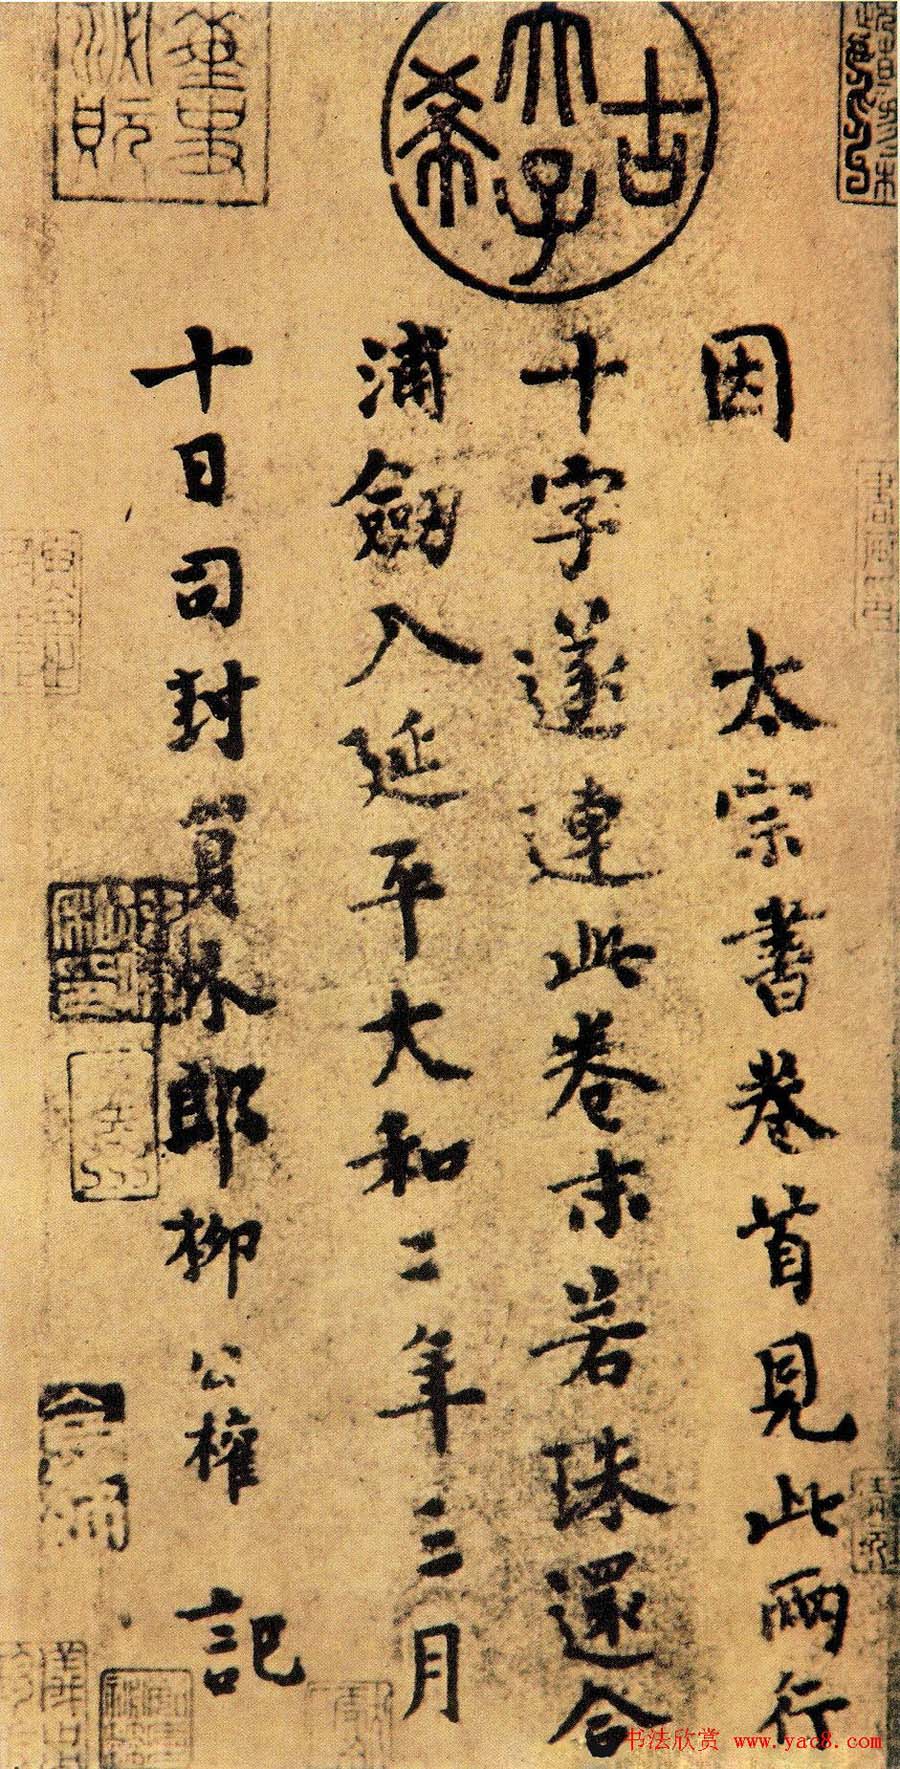 因 太宗書卷首見此兩行
十字遂連此卷末若珠還合
浦劒入延平大和二年三月
十日司封員外郎柳公權 記
古希天子
書法欣赏 www.yac8.com